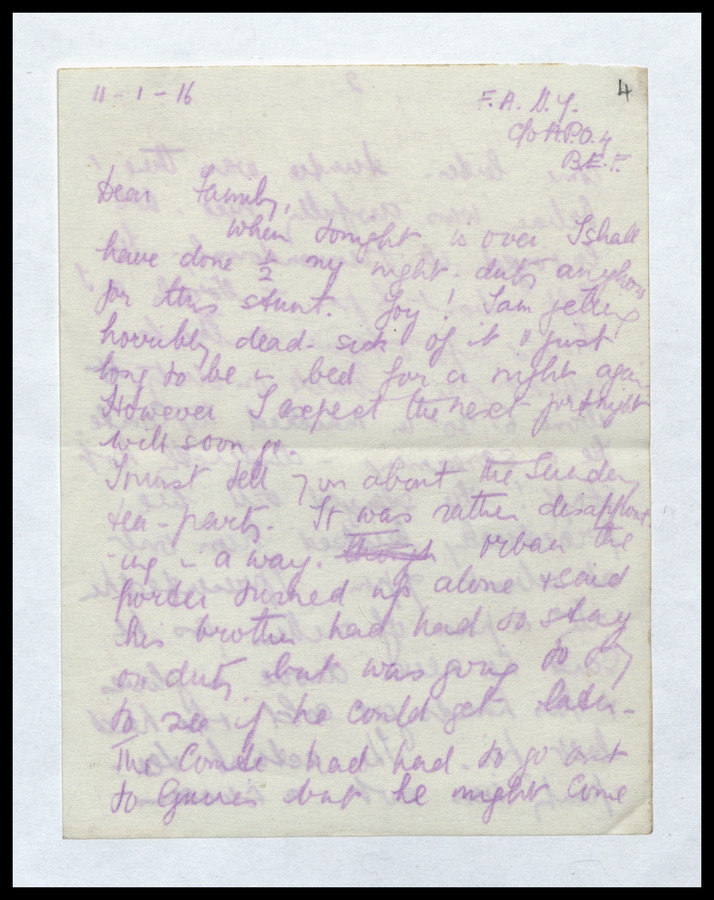 4
11 - 1 - 16
F.A.N.Y.
c/o A.P.O. 4
B.E.F.
Dear Family,
When tonight is over I shall
have done ½ my night-duty anyhow
for this stunt. Joy! I am getting
horribly dead-sick of it & just
long to be in bed for a night again
However I expect the next fortnight
will soon go.
I must tell you about the Sunday
tea-party. It was rather disappoint
-ing in a way. Urban the
porter turned up alone & said
his brother had had to stay
on duty but was going to try
to see if he could get later-
The Comte had had to go out
to Guines but he might come